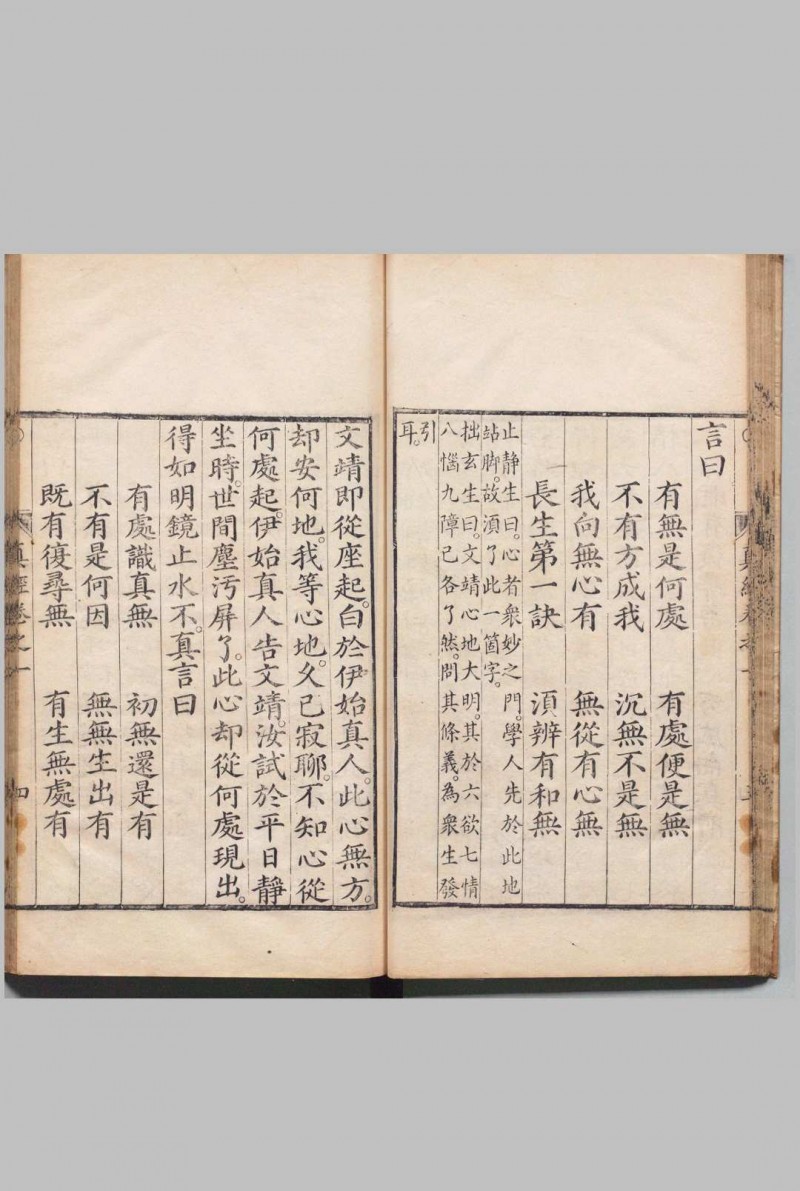 言曰
有無是何處　有處便是無
不有方成我　沉無不是無
我向無心有　無從有心無
長生第一訣　湏辨有和無
止静生曰。心者衆妙之門。學人先於此地
站脚。故湏了此一箇字。
拙玄生曰。文靖心地大明。其於六欲七情
八惱九障已各了然。問其條義。為衆生發
引
耳。
文靖即從座起。白於伊始真人。此心無方。
却安何地。我等心地。久已寂聊。不知心從
何處起。伊始真人告文靖。汝試於平日靜
坐時。世間塵汚屏了。此心却從何處現出。
得如明鏡止水不。真言曰
有處識真無　初無還是有
不有是何因　無無生出有
既有復尋無　有生無處有
真經卷之一
四